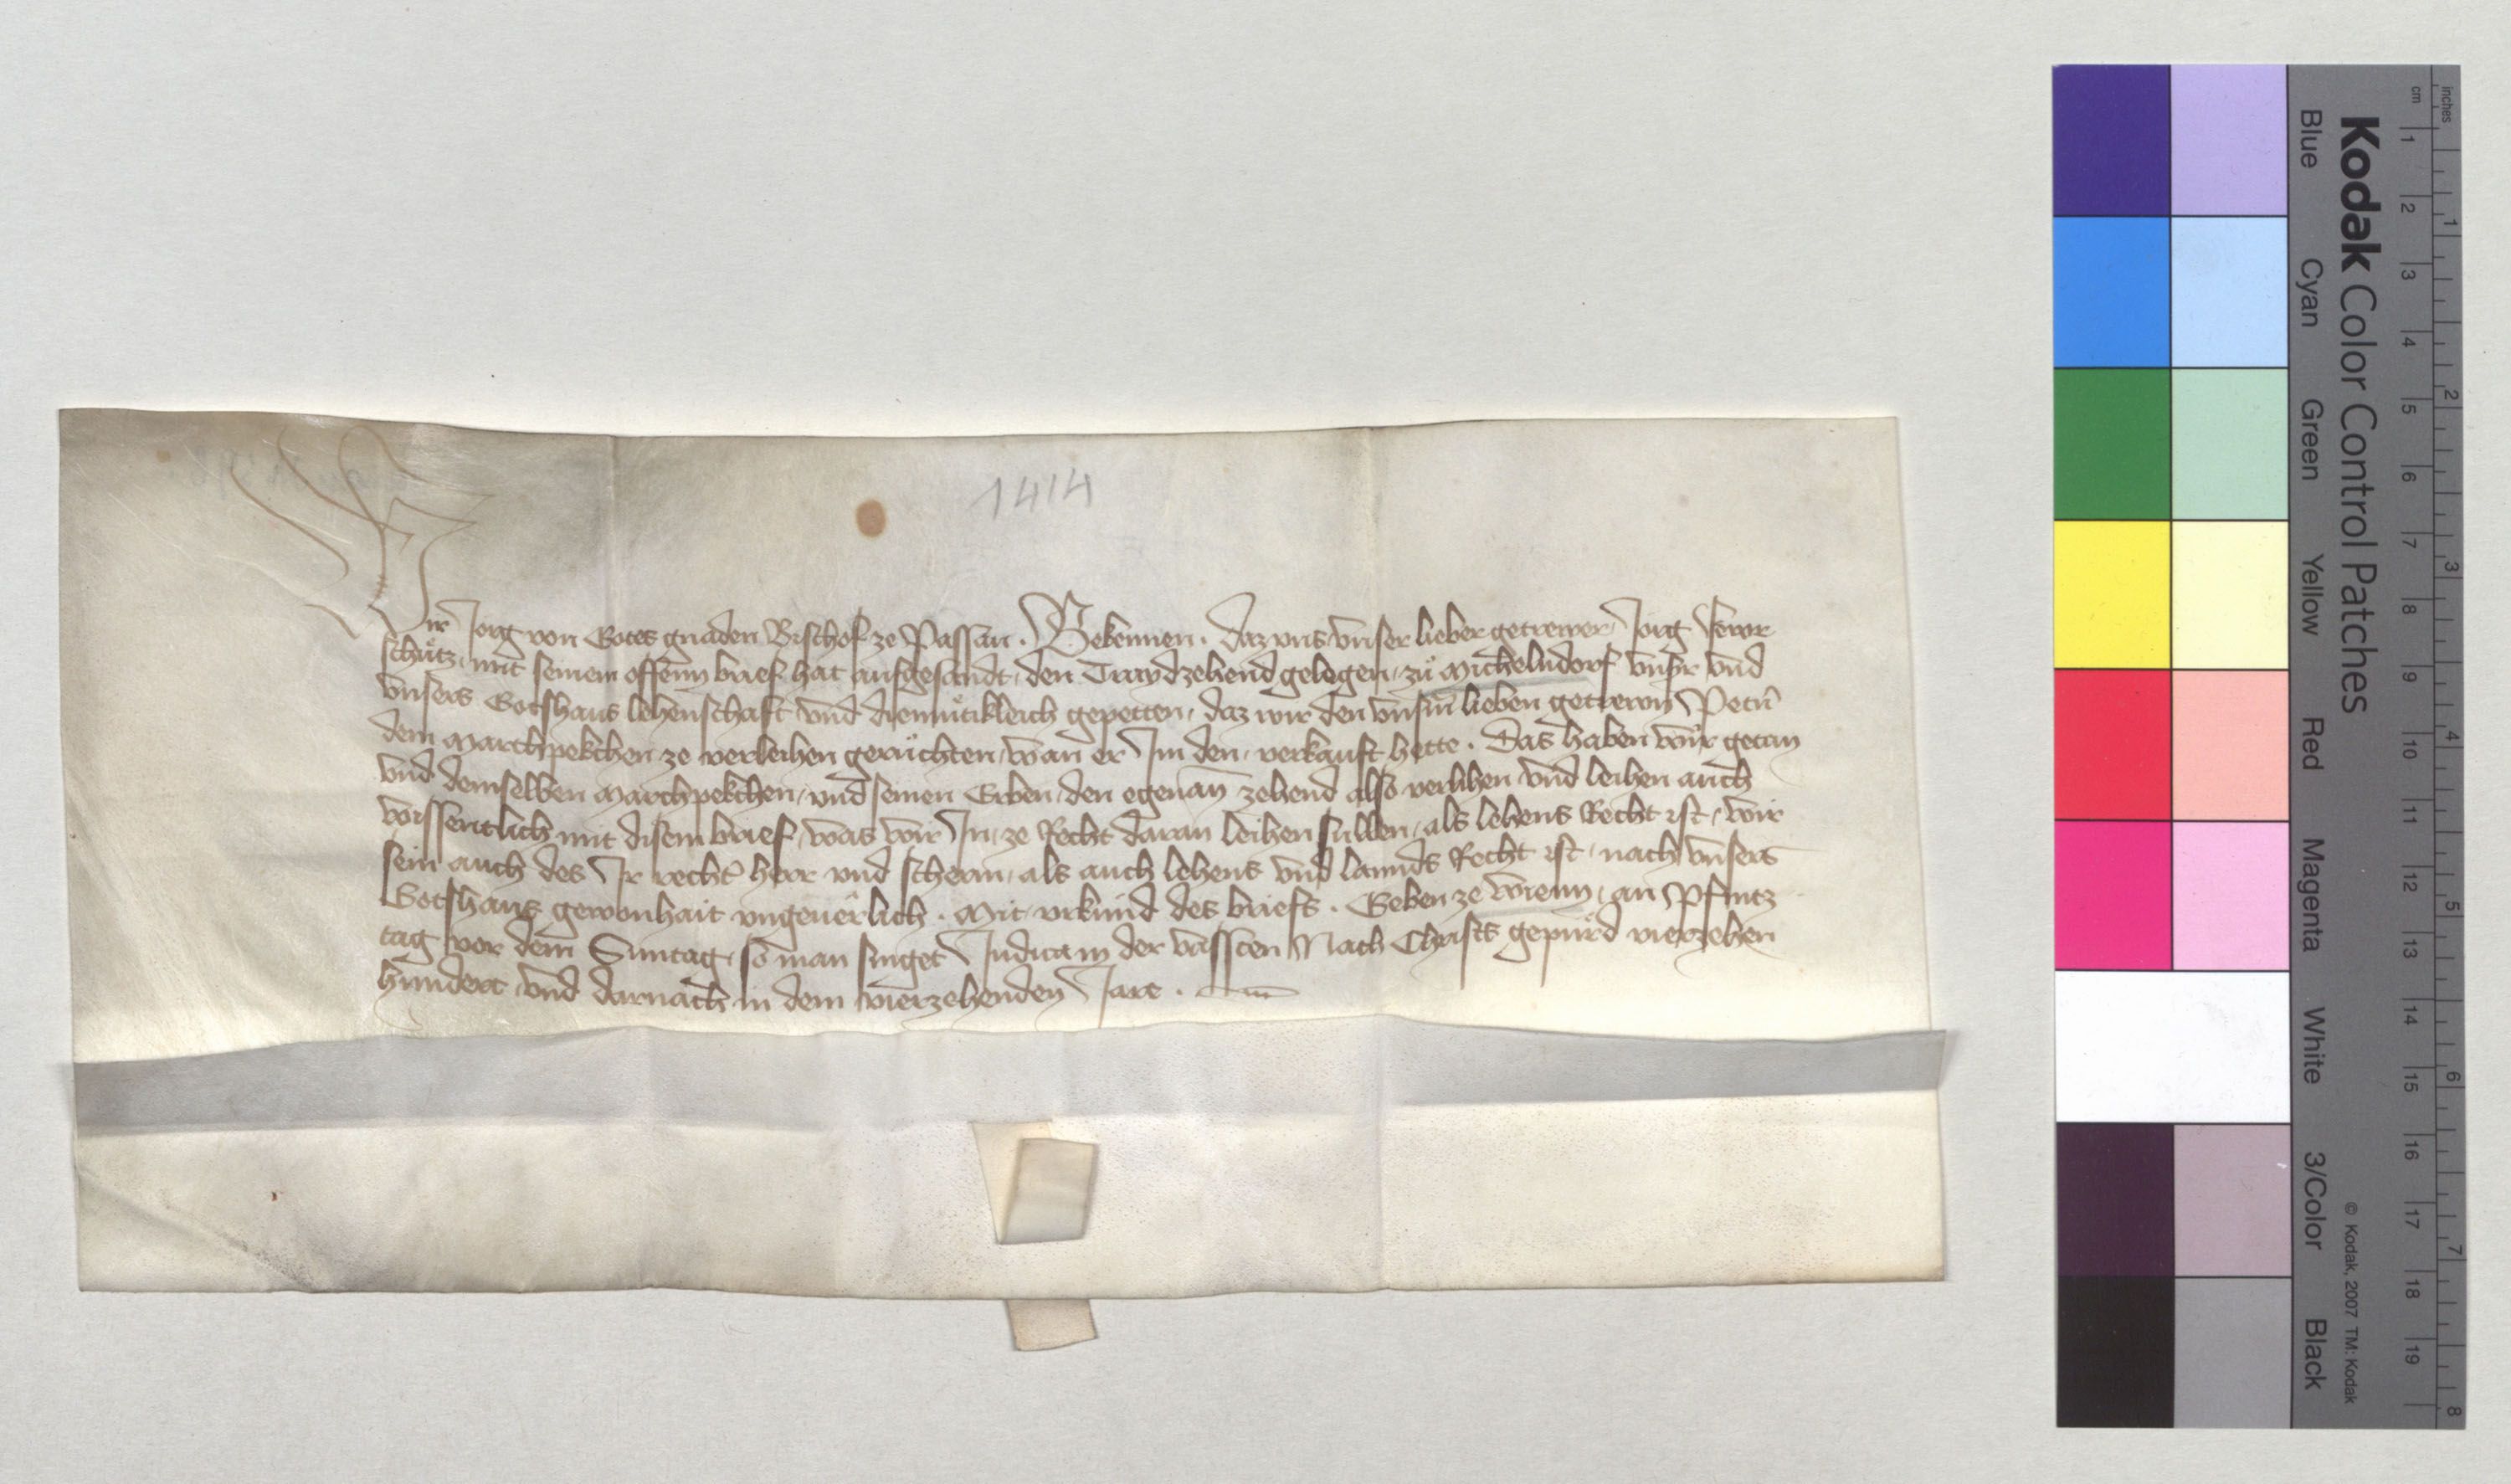 1414
Wir Jorg von Gotes gnaden Bischof ze Passau . Bekennen . daz vns vnser lieber getrewer Jörg
schütz, mit seinem offenn brief hat aufgesandt, den Traydzehend gelegen, zů Michelndorf vnser vnd
vnsers Gotshaus lehenschaft vnd diemuͤtikleich gepetten, daz wir den vnsern lieben getrewn Petern
dem Marchpekchen ze verleihen geruͦchten, wan er Im den, verkauft hette . Das haben wir getan
vnd demselben Marchpekchen, vnd seinen Erben, den egenan zehend also verlihen vnd leihen auch
wissentlich mit disem brief, was wir In, ze Recht daran leihen sullen, als lehens Recht ist, wir
sein auch des Ir recht herr vnd scherm, als auch lehens vnd lannds Recht ist, nach vnsers
Gotshaus gewonhait vngeuerlich . Mit vrkund des briefs . Geben ze Wienn, an Pfintz
tag vor dem Suntag, so man singet Judica in der vassten Nach Christs gepurd vierzehen
hundert vnd darnach in dem vierzehenden Jare .
Kodak Color Control Patches
Blue Cyan Green Yellow Red Magenta White 3/Color Black
© Kodak, 2007 TM: Kodak
cm 1 2 3 4 5 6 7 8 9 10 11 12 13 14 15 16 17 18 19
inches 1 2 3 4 5 6 7 8